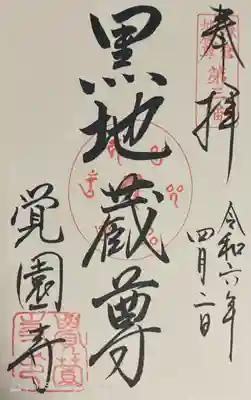 奉拝
黒地蔵尊
令和六年
四月二日
覚園寺